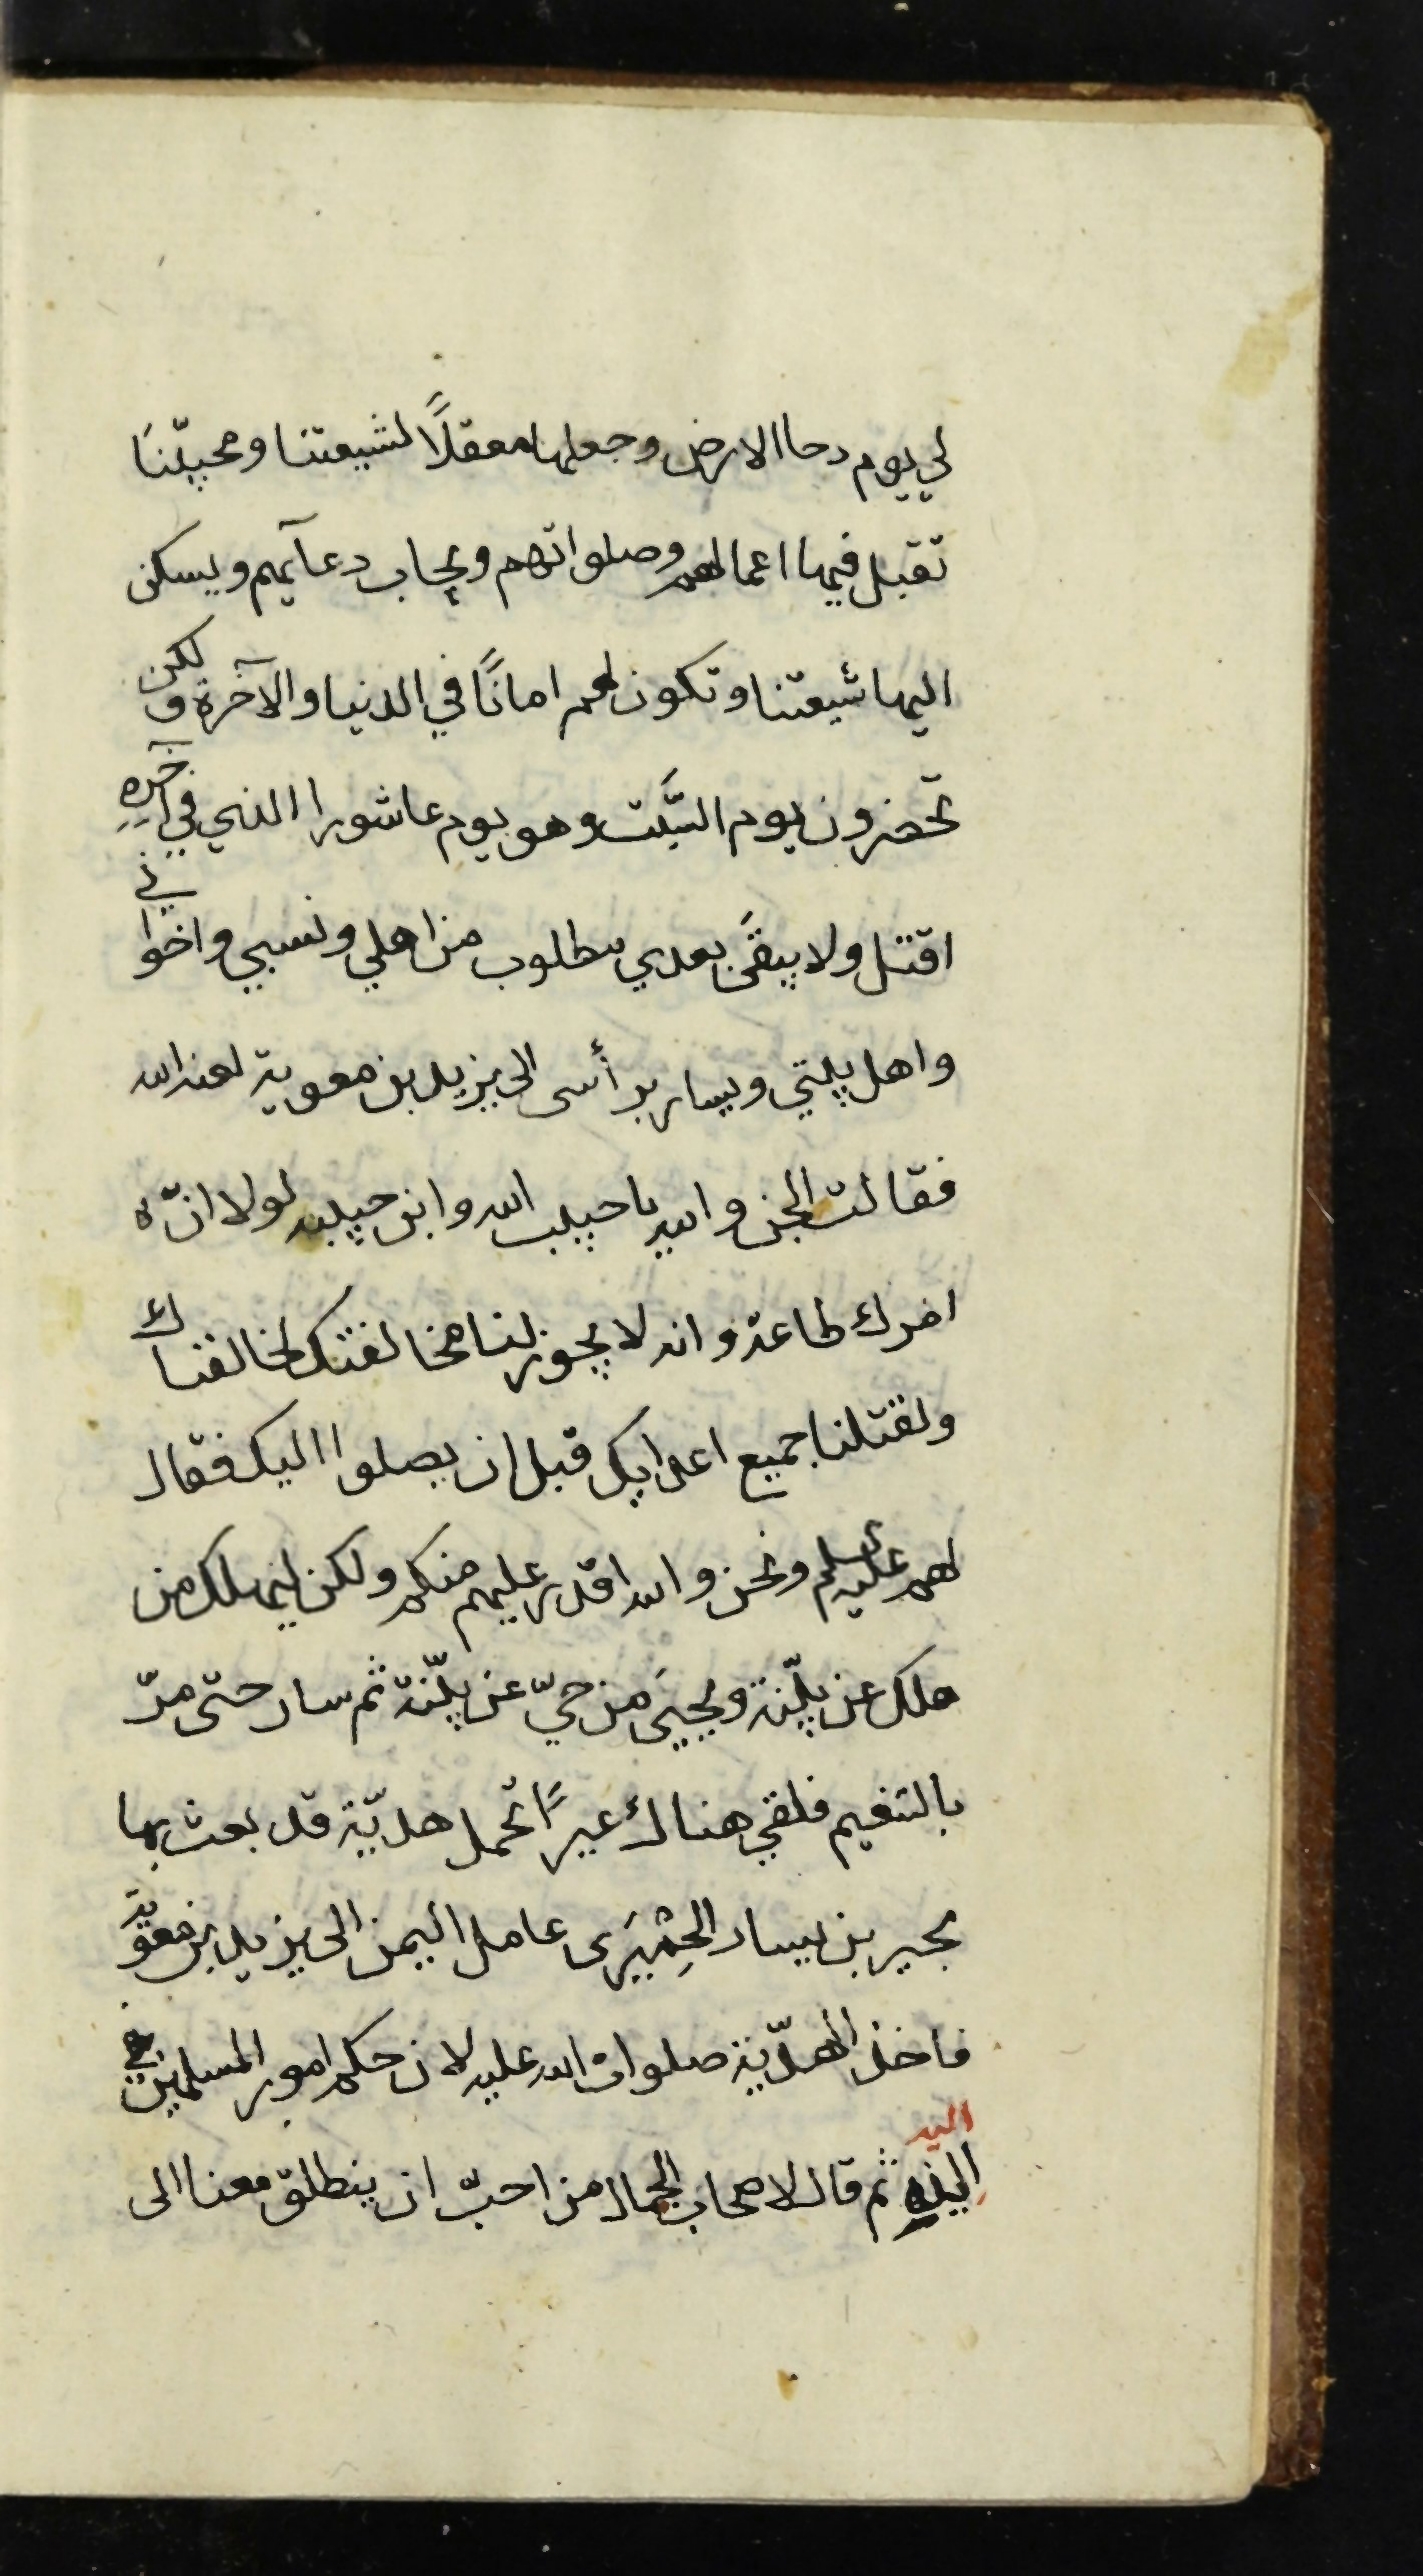 لي يوم دحا الارض وجعلها معقلًا لشيعتنا ومحبّينا
تقبل فيها اعمالهم وصلواتهم ويجاب دعآئهم ويسكن
اليها شيعتنا وتكون لهم امانًا في الدنيا والآخرة ولكن
تحضرون يوم السّبت وهو يوم عاشورا الذي في آخره
اقتل ولا يبقى بعدي مطلوب من اهلي ونسبي واخواني
واهل بيتي ويسار برأسى الى يزيد بن معوية لعنه الله
فقالت الجن والله يا حبيب الله وابن حبيبه لولا انّ
امرك طاعة وانه لا يجوز لنا مخالفتك لخالفناك
ولقتلنا جميع اعدايك قبل ان يصلوا اليك فقال
لهم عليه السلم ونحن والله اقدر عليهم منكم ولكن ليهلك من
هلك عن بيّنة ويحيى من حيّ عن بيّنة ثم سار حتى مرّ
بالتنعيم فلقي هناك عيرًا تحمل هديّة قد بعث بها
بحير بن يسار الحِمْيَرى عامل اليمن الى يزيد بن معوية
فاخذ الهديّة صلوات الله عليه لان حكم امور المسلمين
اليه
اليه ثم قال لاصحاب الجمال من احبّ ان ينطلق معنا الى